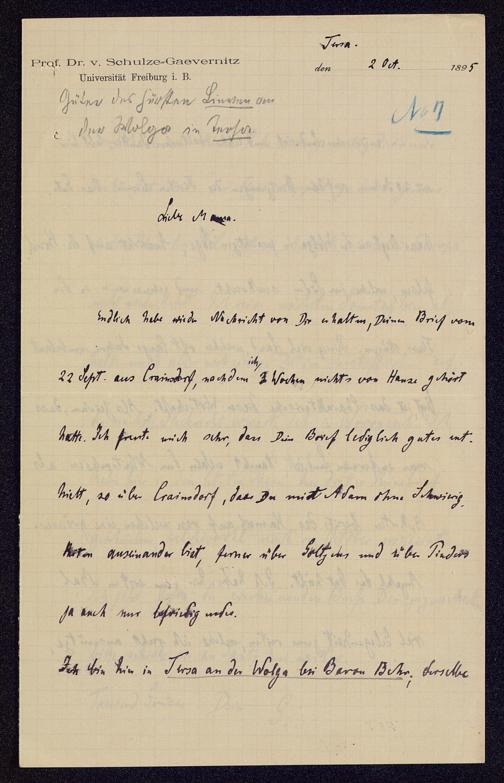 Tersa.
Prof. Dr. v. Schulze-Gaevernitz
den 2 Oct. 1895
Universität Freiburg i. B.
Güter des Fürsten
No 7
der Wolga in Tersa
Liebe Mama.
Endlich habe wieder Nachricht von Dir erhalten, Deinen Brief vom
22 Sept. aus Crainsdorf, nachdem ich 3 Wochen nichts von Hause gehört
hatte. Ich freute mich sehr, dass Dein Brief lediglich gutes ent-
hielt, so über Crainsdorf, dass Du mit Adam ohne Schwierig-
keiten auseinander bist, ferner über Goltzens und über
ja auch nur befriedigendes.
Ich bin hier in Tersa an der Wolga bei Baron Behr; derselbe